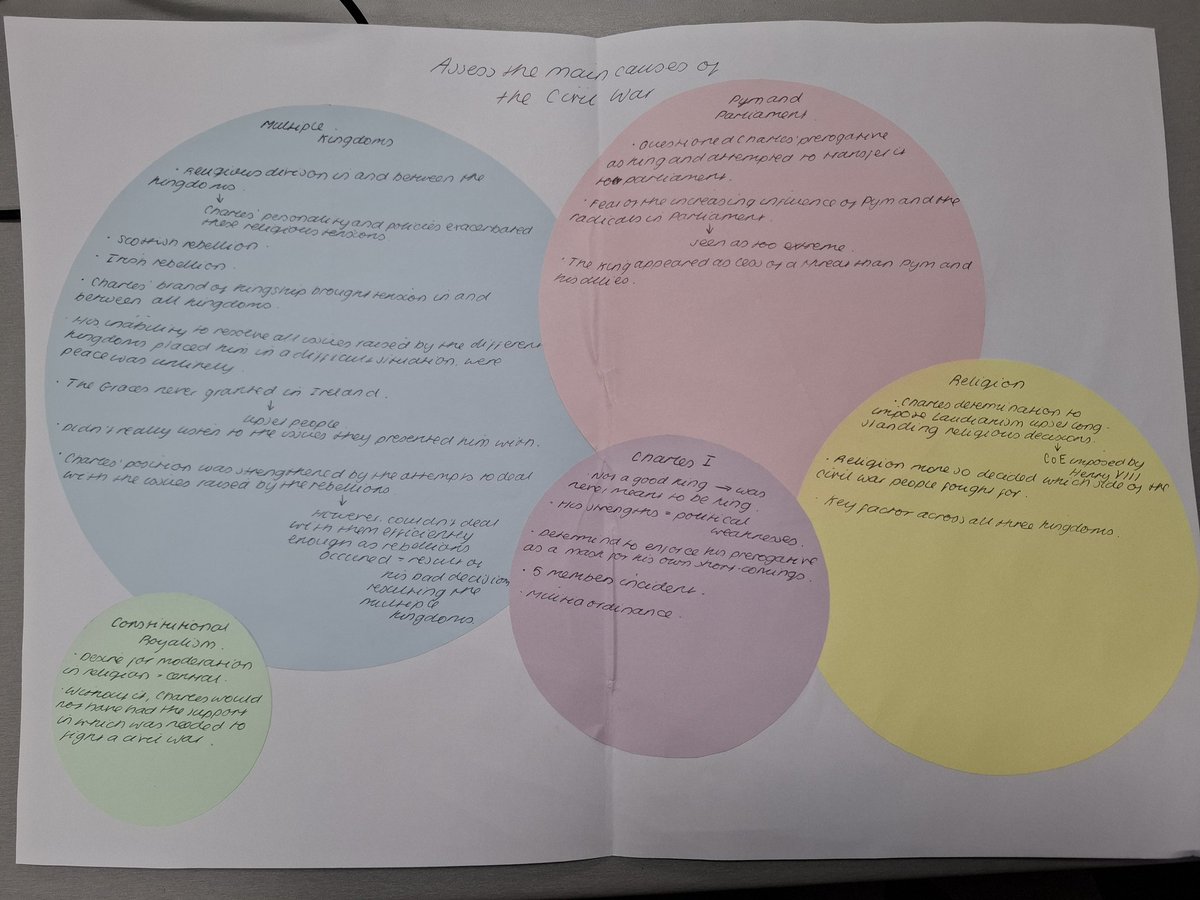 Assess the main causes of
the Civil War
Multiple
Kingdoms
· Religious division in and between the
kingdoms.
↓
Charles' personality and policies exacerbated
these religious tensions.
· Scottish rebellion.
· Irish rebellion.
· Charles' brand of kingship brought tension in and
between all kingdoms.
· His inability to resolve all issues raised by the different
kingdoms placed him in a difficult situation, were
peace was unlikely.
· The Graces never granted in Ireland.
↓
upset people
· Didn't really listen to the issues they presented him with.
· Charles' position was strengthened by the attempts to deal
with the issues raised by the rebellions
↓
However, couldn't deal
with them efficiently
enough as rebellions
occured = result of
his bad decision
resulting the
multiple
kingdoms.
Pym and
Parliament.
· Questioned Charles' prerogative
as king and attempted to transfer it
to parliament.
· Fear of the increasing influence of Pym and the
radicals in Parliament.
↓
seen as too extreme.
· The King appeared as less of a threat than Pym and
his allies.
Religion
· Charles determination to
impose Laudianism upset long-
standing religious decisions.
↓
CoE imposed by
Henry VIII
· Religion more so decided which side of the
civil war people fought for.
· Key factor across all three kingdoms.
Charles I
Not a good king → was
never meant to be king.
· His strengths = political
weaknesses.
· Determind to enforce his prerogative
as a mask for his own short-comings.
· 5 members incident.
· Militia ordinance.
Constitutional
Royalism.
· Desire for moderation
in religion = central.
· Without it, Charles would
not have had the support
in which was needed to
fight a civil war.